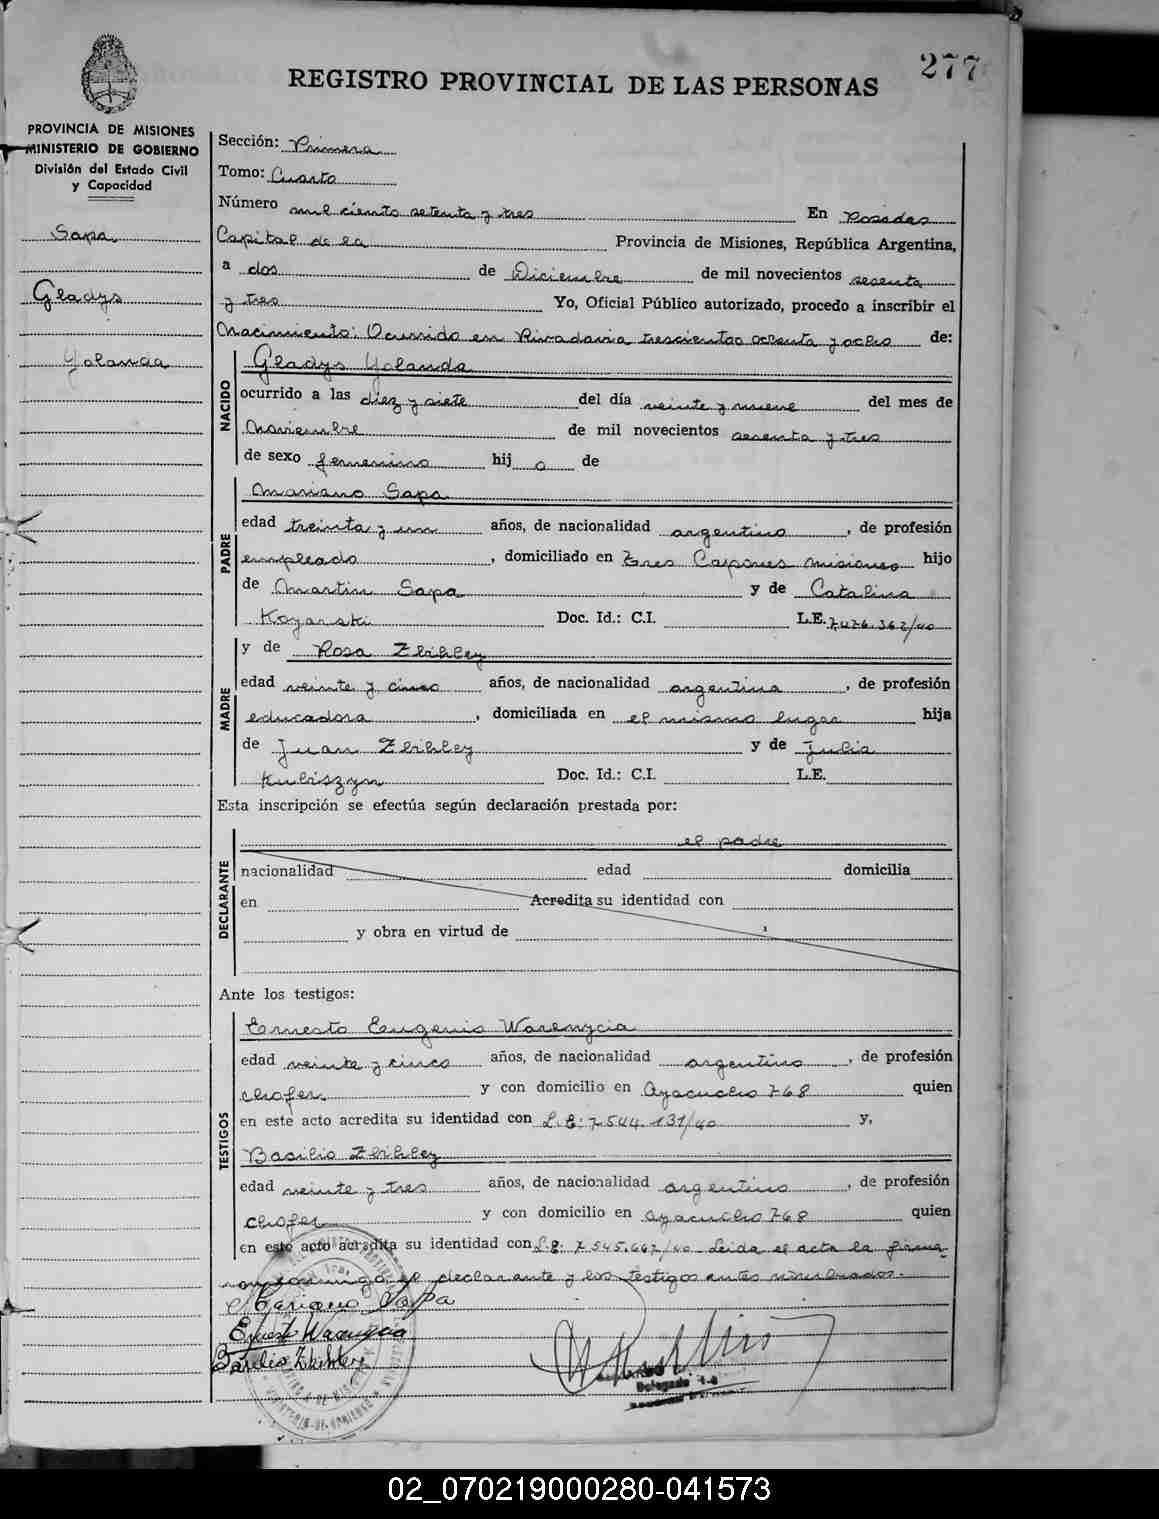 277
REGISTRO PROVINCIAL DE LAS PERSONAS
PROVINCIA DE MISIONES
MINISTERIO DE GOBIERNO
División del Estado Civil
y Capacidad
Sapa
Gladys
Yolanda
Sección: Primera
Tomo: Cuarto
Número mil ciento setenta y tres En Posadas
Capital de la Provincia de Misiones, República Argentina,
a dos de Diciembre de mil novecientos sesenta
y tres Yo, Oficial Público autorizado, procedo a inscribir el
Nacimiento: Ocurrido en Rivadavia trescientos ochenta y ocho de:
NACIDO
Gladys Yolanda
ocurrido a las diez y siete del día veinte y nueve del mes de
Noviembre de mil novecientos sesenta y tres
de sexo femenino hij a de
PADRE
Mariano Sapa
edad treinta y un años, de nacionalidad argentino, de profesión
empleado, domiciliado en Tres Capones Misiones hijo
de Martin Sapa y de Catalina
Kozarski Doc. Id.: C.I. L.E. 7.476.362/40
y de Rosa Zbihley
MADRE
edad veinte y cinco años, de nacionalidad argentina, de profesión
educadora, domiciliada en el mismo lugar hija
de Juan Zbihley y de Julia
Kubiszyn Doc. Id.: C.I. L.E.
Esta inscripción se efectúa según declaración prestada por:
DECLARANTE
el padre
nacionalidad edad domicilia
en Acredita su identidad con
y obra en virtud de
Ante los testigos:
TESTIGOS
Ernesto Eugenio Warenycia
edad veinte y cinco años, de nacionalidad argentino, de profesión
chofer y con domicilio en Ayacucho 768 quien
en este acto acredita su identidad con L.E: 7.544.131/40 y,
Basilio Zbihley
edad veinte y tres años, de nacionalidad argentino, de profesión
chofer y con domicilio en Ayacucho 768 quien
en este acto acredita su identidad con L.E. 7.545.667/40. Leida el acta la firma-
ron conmigo el declarante y los testigos antes nombrados.
Mariano Sapa
Ernesto Warenycia
Basilio Zbihley
Delegado
02_070219000280-041573